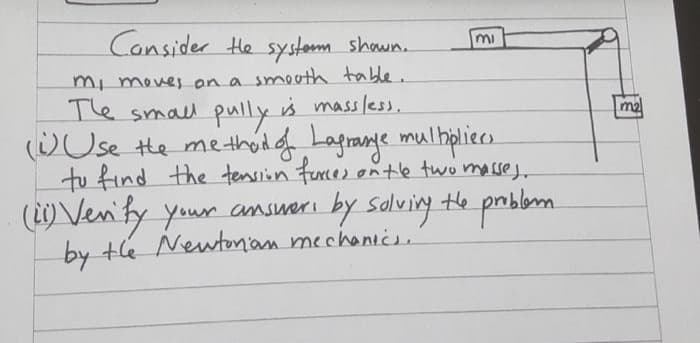 Consider the system shown.
m1
m1 moves on a smooth table.
The small pully is massless.
m2
(i) Use the method of Lagrange multipliers
to find the tension forces on the two masses.
(ii) Verify your answers by solving the problem
by the Newtonian mechanics.